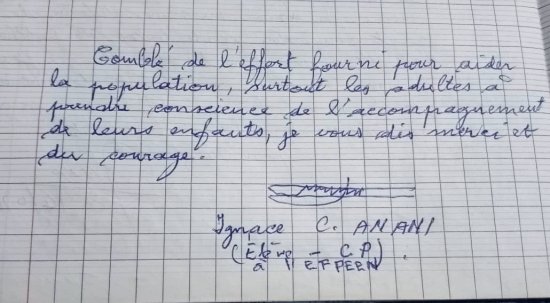 Comblé de l'effort fourni pour aider
la population, surtout les adultes à
prendre conscience de l'accompagnement
de leurs enfants, je vous dis merci et
du courage.
Ignace C. ANANI
CP)
à EFPEEN